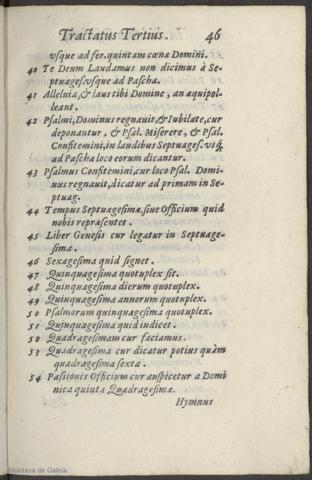 Tractatus Tertius. 46
vsque ad fer. quintam cœna Domini.
40 Te Deum Laudamus non dicimus à Se-
ptuages. vsque ad Pascha.
41 Alleluia, & laus tibi Domine, an æquipol-
leant.
42 Psalmi, Dominus regnauit, & Iubilate, cur
deponantur, & Psal. Miserere, & Psal.
Confitemini, in laudibus Septuages. vsq;
ad Pascha loco eorum dicantur.
43 Psalmus Confitemini, cur loco Psal. Domi-
nus regnauit, dicatur ad primam in Se-
ptuag.
44 Tempus Septuagesimæ, siue Officium quid
nobis repræsentet.
45 Liber Genesis cur legatur in Septuage-
sima.
46 Sexagesima quid signet.
47 Quinquagesima quotuplex sit.
48 Quinquagesima dierum quotuplex.
49 Quinquagesima annorum quotuplex.
50 Psalmorum quinquagesima quotuplex.
51 Quinquagesima quid indicet.
52 Quadragesimam cur faciamus.
53 Quadragesima cur dicatur potius quàm
quadragesima sexta.
54 Passionis Officium cur auspicetur a Domi
nica quinta Quadragesimæ.
Hymnus
Biblioteca de Galicia